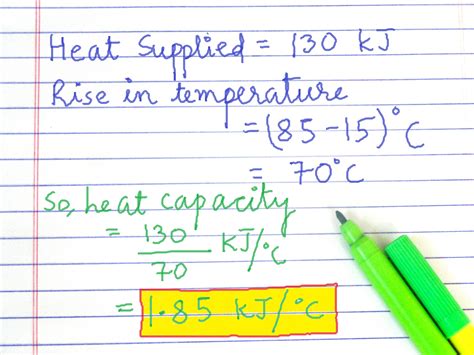 Heat Supplied = 130 kJ
Rise in temperature
= (85-15)°C
= 70°C
So, heat capacity
= 130/70 kJ/°C
= 1.85 kJ/°C